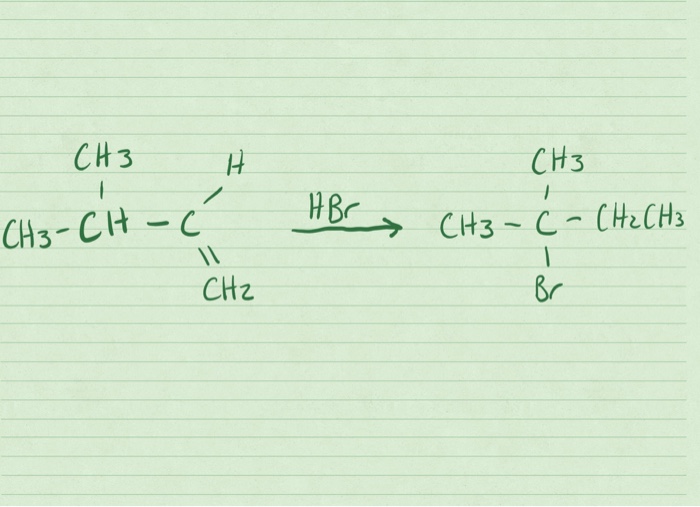 CH3 H
CH3-CH-C
CH2
HBr
CH3
CH3-C-CH2CH3
Br